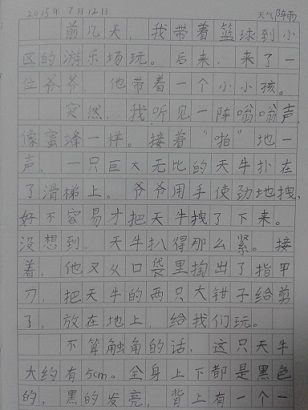 2015年7月12日 天气阵雨
前几天，我带着篮球到小
区的游乐场玩。后来，来了一
位爷爷，他带着一个小小孩。
突然，我听见一阵嗡嗡声，
像蜜蜂一样。接着"啪"地一
声，一只巨大无比的天牛扑在
了滑梯上。爷爷用手使劲地拽，
好不容易才把天牛拽了下来。
没想到，天牛扒得那么紧。接
着，他又从口袋里掏出了指甲
刀，把天牛的两只大钳子给剪
了，放在地上，给我们玩。
不算触角的话，这只天牛
大约有5cm。全身上下都是黑色
的，黑的发亮，背上有一个一